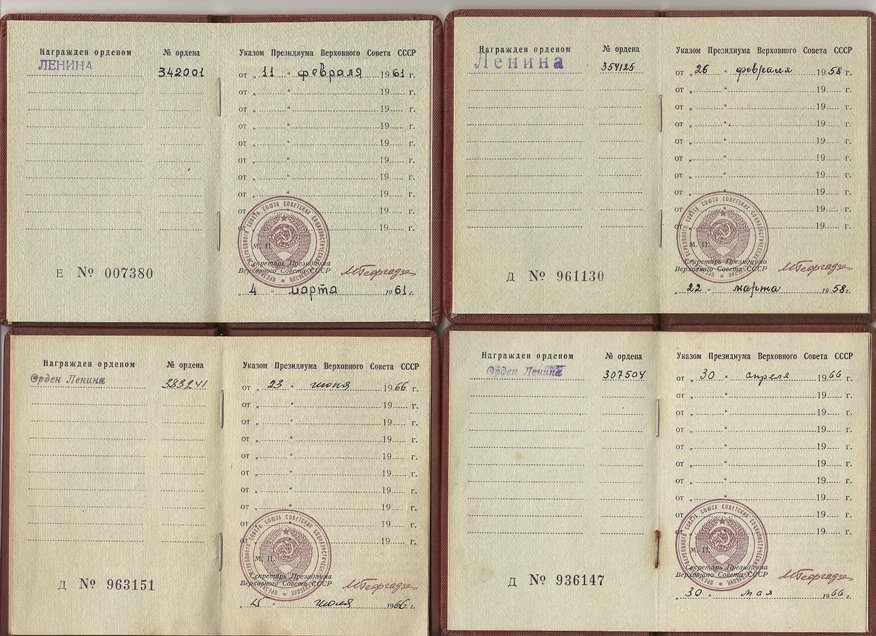 Награжден орденом № ордена
ЛЕНИНА 342001
Е № 007380
Указом Президиума Верховного Совета СССР
от „ 11 " февраля 1961 г.
от „ " 19 г.
от „ " 19 г.
от „ " 19 г.
от „ " 19 г.
от „ " 19 г.
от „ " 19 г.
от „ " 19 г.
от „ " 19 г.
19 г.
М. П.
Секретарь Президиума
Верховного Совета СССР
„ 4 " марта 1961 г.
Награжден орденом № ордена
Ленина 354125
Д № 961130
Указом Президиума Верховного Совета СССР
от „ 26 " февраля 1958 г.
от „ " 19 г.
от „ " 19 г.
от „ " 19 г.
от „ " 19 г.
от „ " 19 г.
от „ " 19 г.
от „ " 19 г.
от „ " 19 г.
19 г.
М. П.
Секретарь Президиума
Верховного Совета СССР
„ 22 " марта 1958 г.
Награжден орденом № ордена
Орден Ленина 383241
Д № 963151
Указом Президиума Верховного Совета СССР
от „ 23 " июня 1966 г.
от „ " 19 г.
от „ " 19 г.
от „ " 19 г.
от „ " 19 г.
от „ " 19 г.
от „ " 19 г.
от „ " 19 г.
от „ " 19 г.
19 г.
М. П.
Секретарь Президиума
Верховного Совета СССР
июля 1966 г.
Награжден орденом № ордена
Орден Ленина 307504
Д № 936147
Указом Президиума Верховного Совета СССР
от „ 30 " апреля 1966 г.
от „ " 19 г.
от „ " 19 г.
от „ " 19 г.
от „ " 19 г.
от „ " 19 г.
от „ " 19 г.
от „ " 19 г.
от „ " 19 г.
19 г.
М. П.
Секретарь Президиума
Верховного Совета СССР
„ 30 " мая 1966 г.